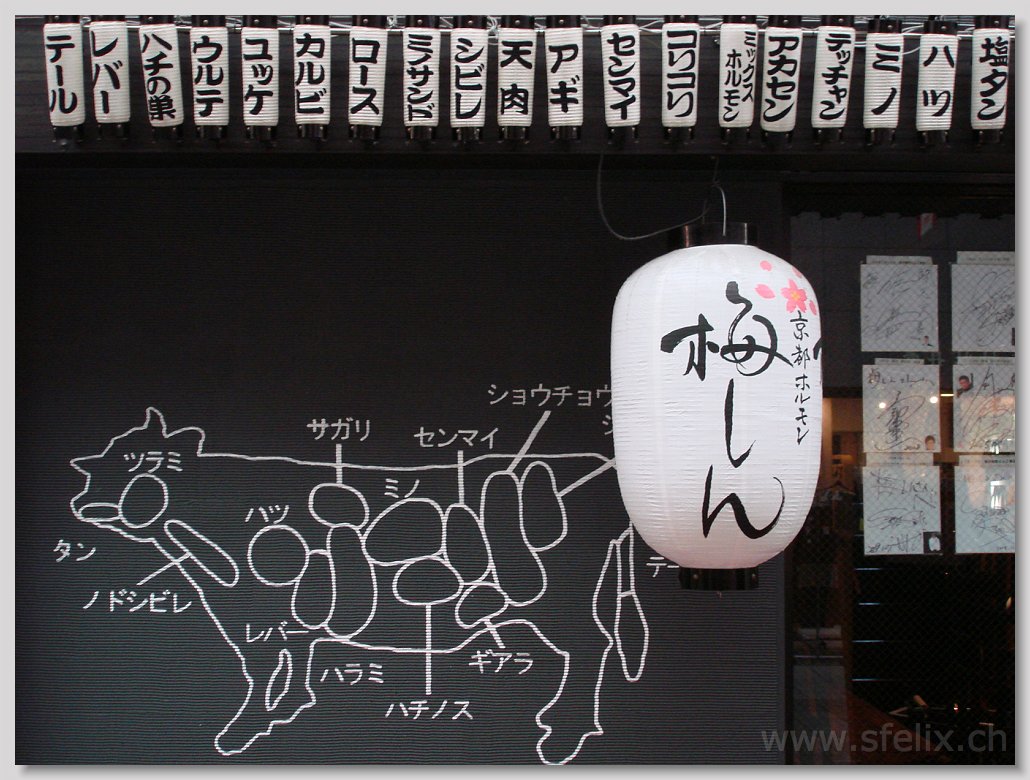 テール
レバー
ハチの巣
ウルテ
ユッケ
カルビ
ロース
ミラサンド
シビレ
天肉
アギ
センマイ
コリコリ
ミックスホルモン
アカセン
テッチャン
ミノ
ハツ
塩タン
梅しん
京都ホルモン
ショウチョウ
シ
サガリ
センマイ
ツラミ
ミノ
ハツ
タン
テー
ノドシビレ
レバー
ハラミ
ギアラ
ハチノス
www.sfelix.ch